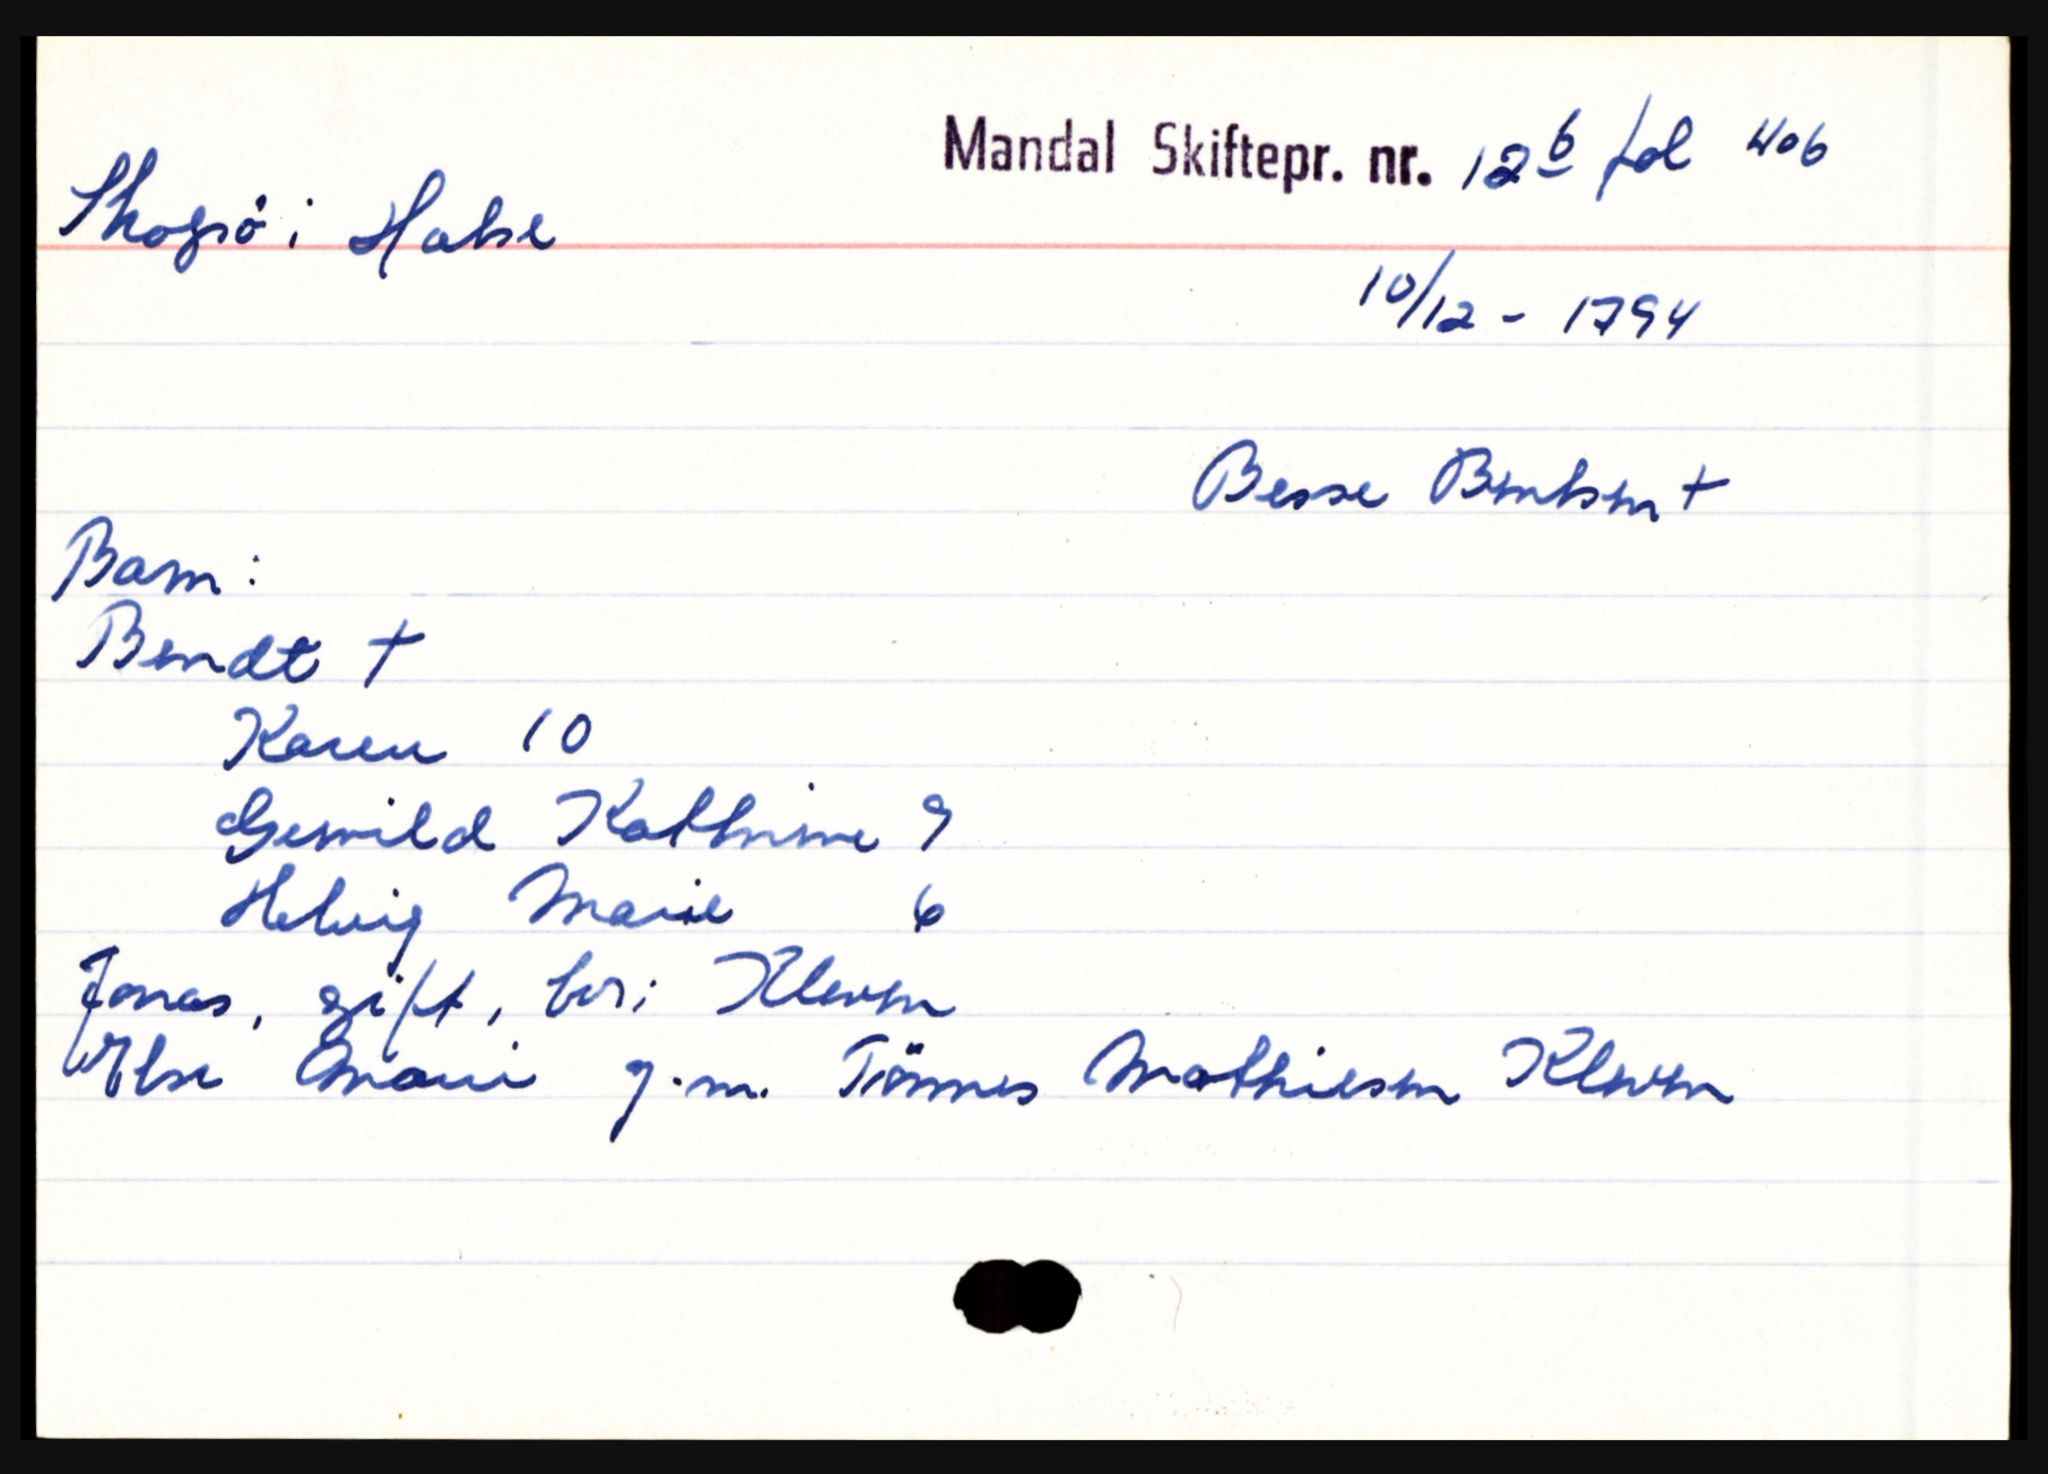 Mandal Skiftepr. nr. 12b fol 406
Skogsö i Halse
10/12 - 1794
Besse Bentsen +
Barn:
Bendt +
Karen 10
Gervild Kathrine 9
Helvig Marie 6
Jonas, gift, bor i Kleven
Else Marie g.m. Tönnes Mathiesen Kleven